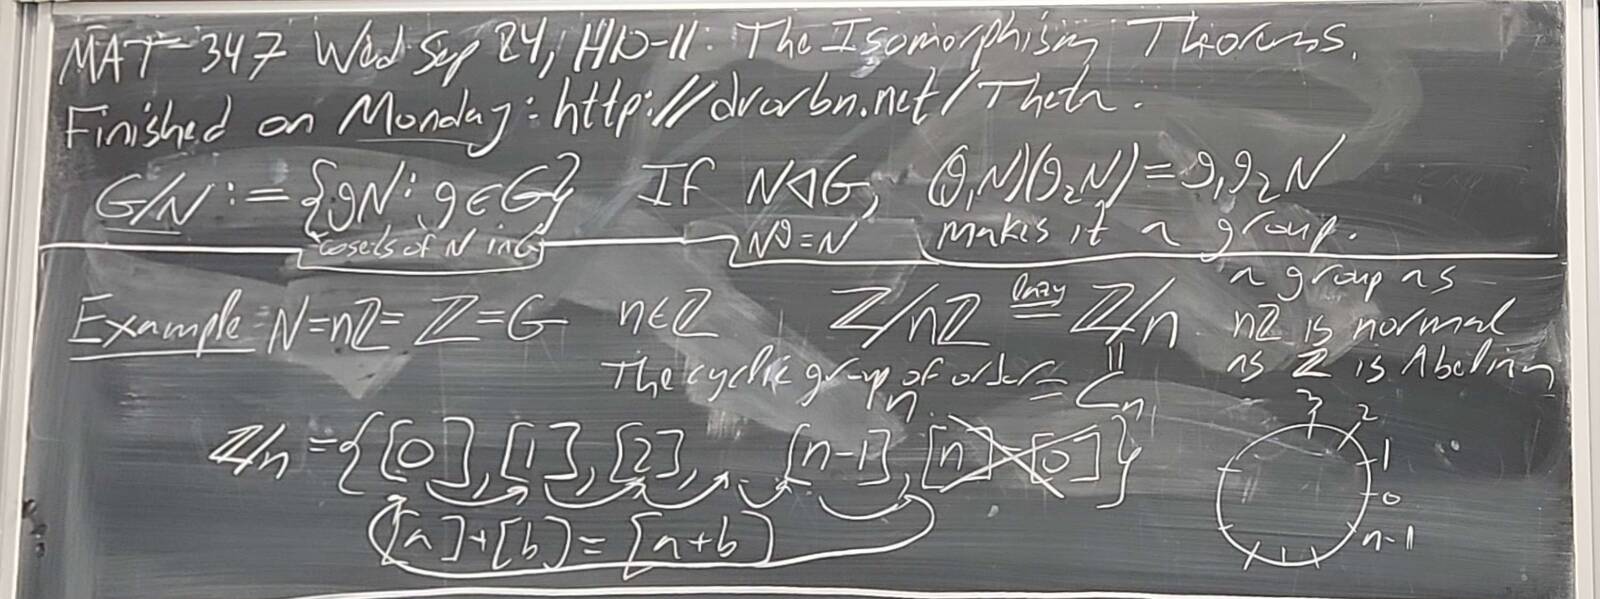 MAT-347 Wed Sep 24, H10-11: The Isomorphism Theorems.
Finished on Monday: http://drorbn.net/Theta.
G/N := {gN: g∈G} If N◁G, (g₁N)(g₂N)=g₁g₂N
cosets of N in G N^g=N makes it a group.
Example N=nZ= Z=G n∈Z Z/nZ lazy = Z/n a group as
nZ is normal
as Z is Abelian
The cyclic group of order n = Cₙ
Z/n = {[0],[1],[2], .. [n-1], [n]=[0]}
[a]+[b]=[a+b]
3 2 1 0 n-1